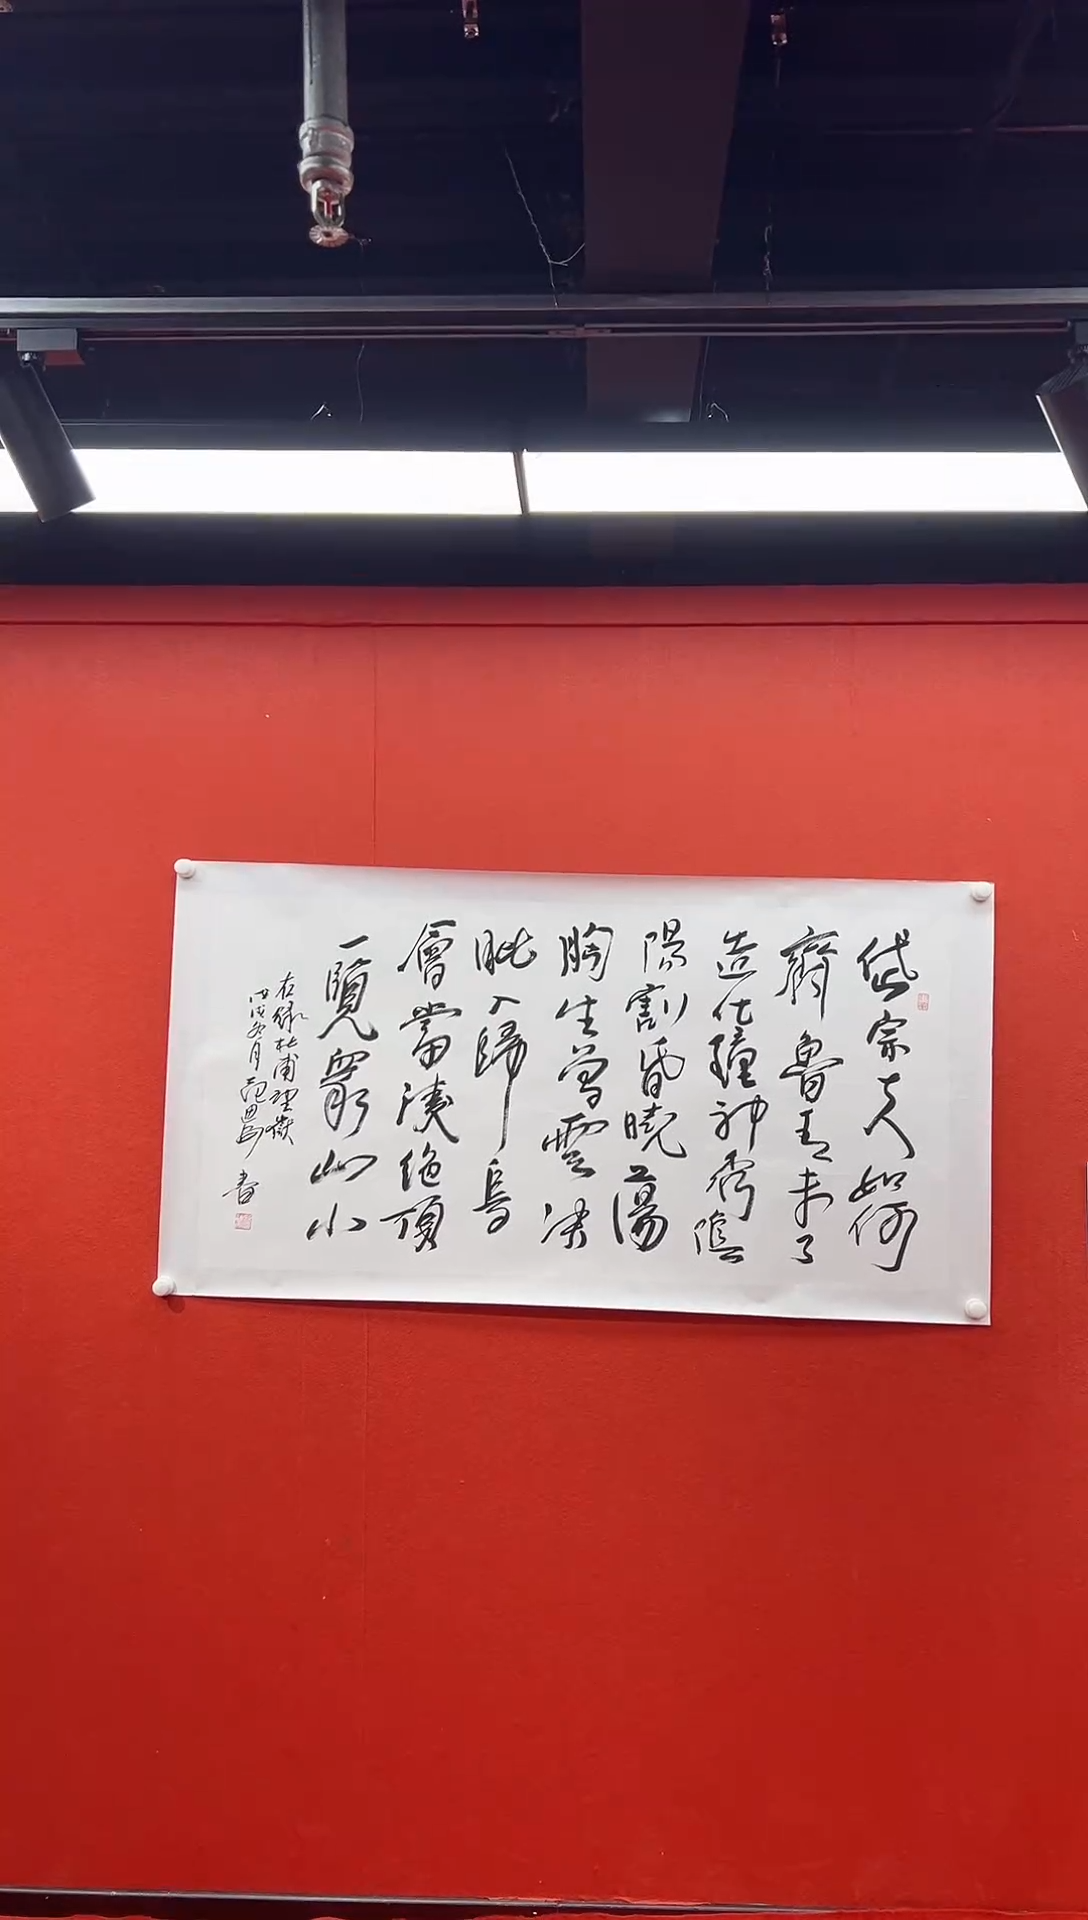 岱宗夫如何
齊魯青未了
造化鍾神秀陰
陽割昏曉蕩
胸生曾雲決
眦入歸鳥
會當凌絶頂
一覽眾山小
右錄杜甫望嶽
戊戌冬月范
書